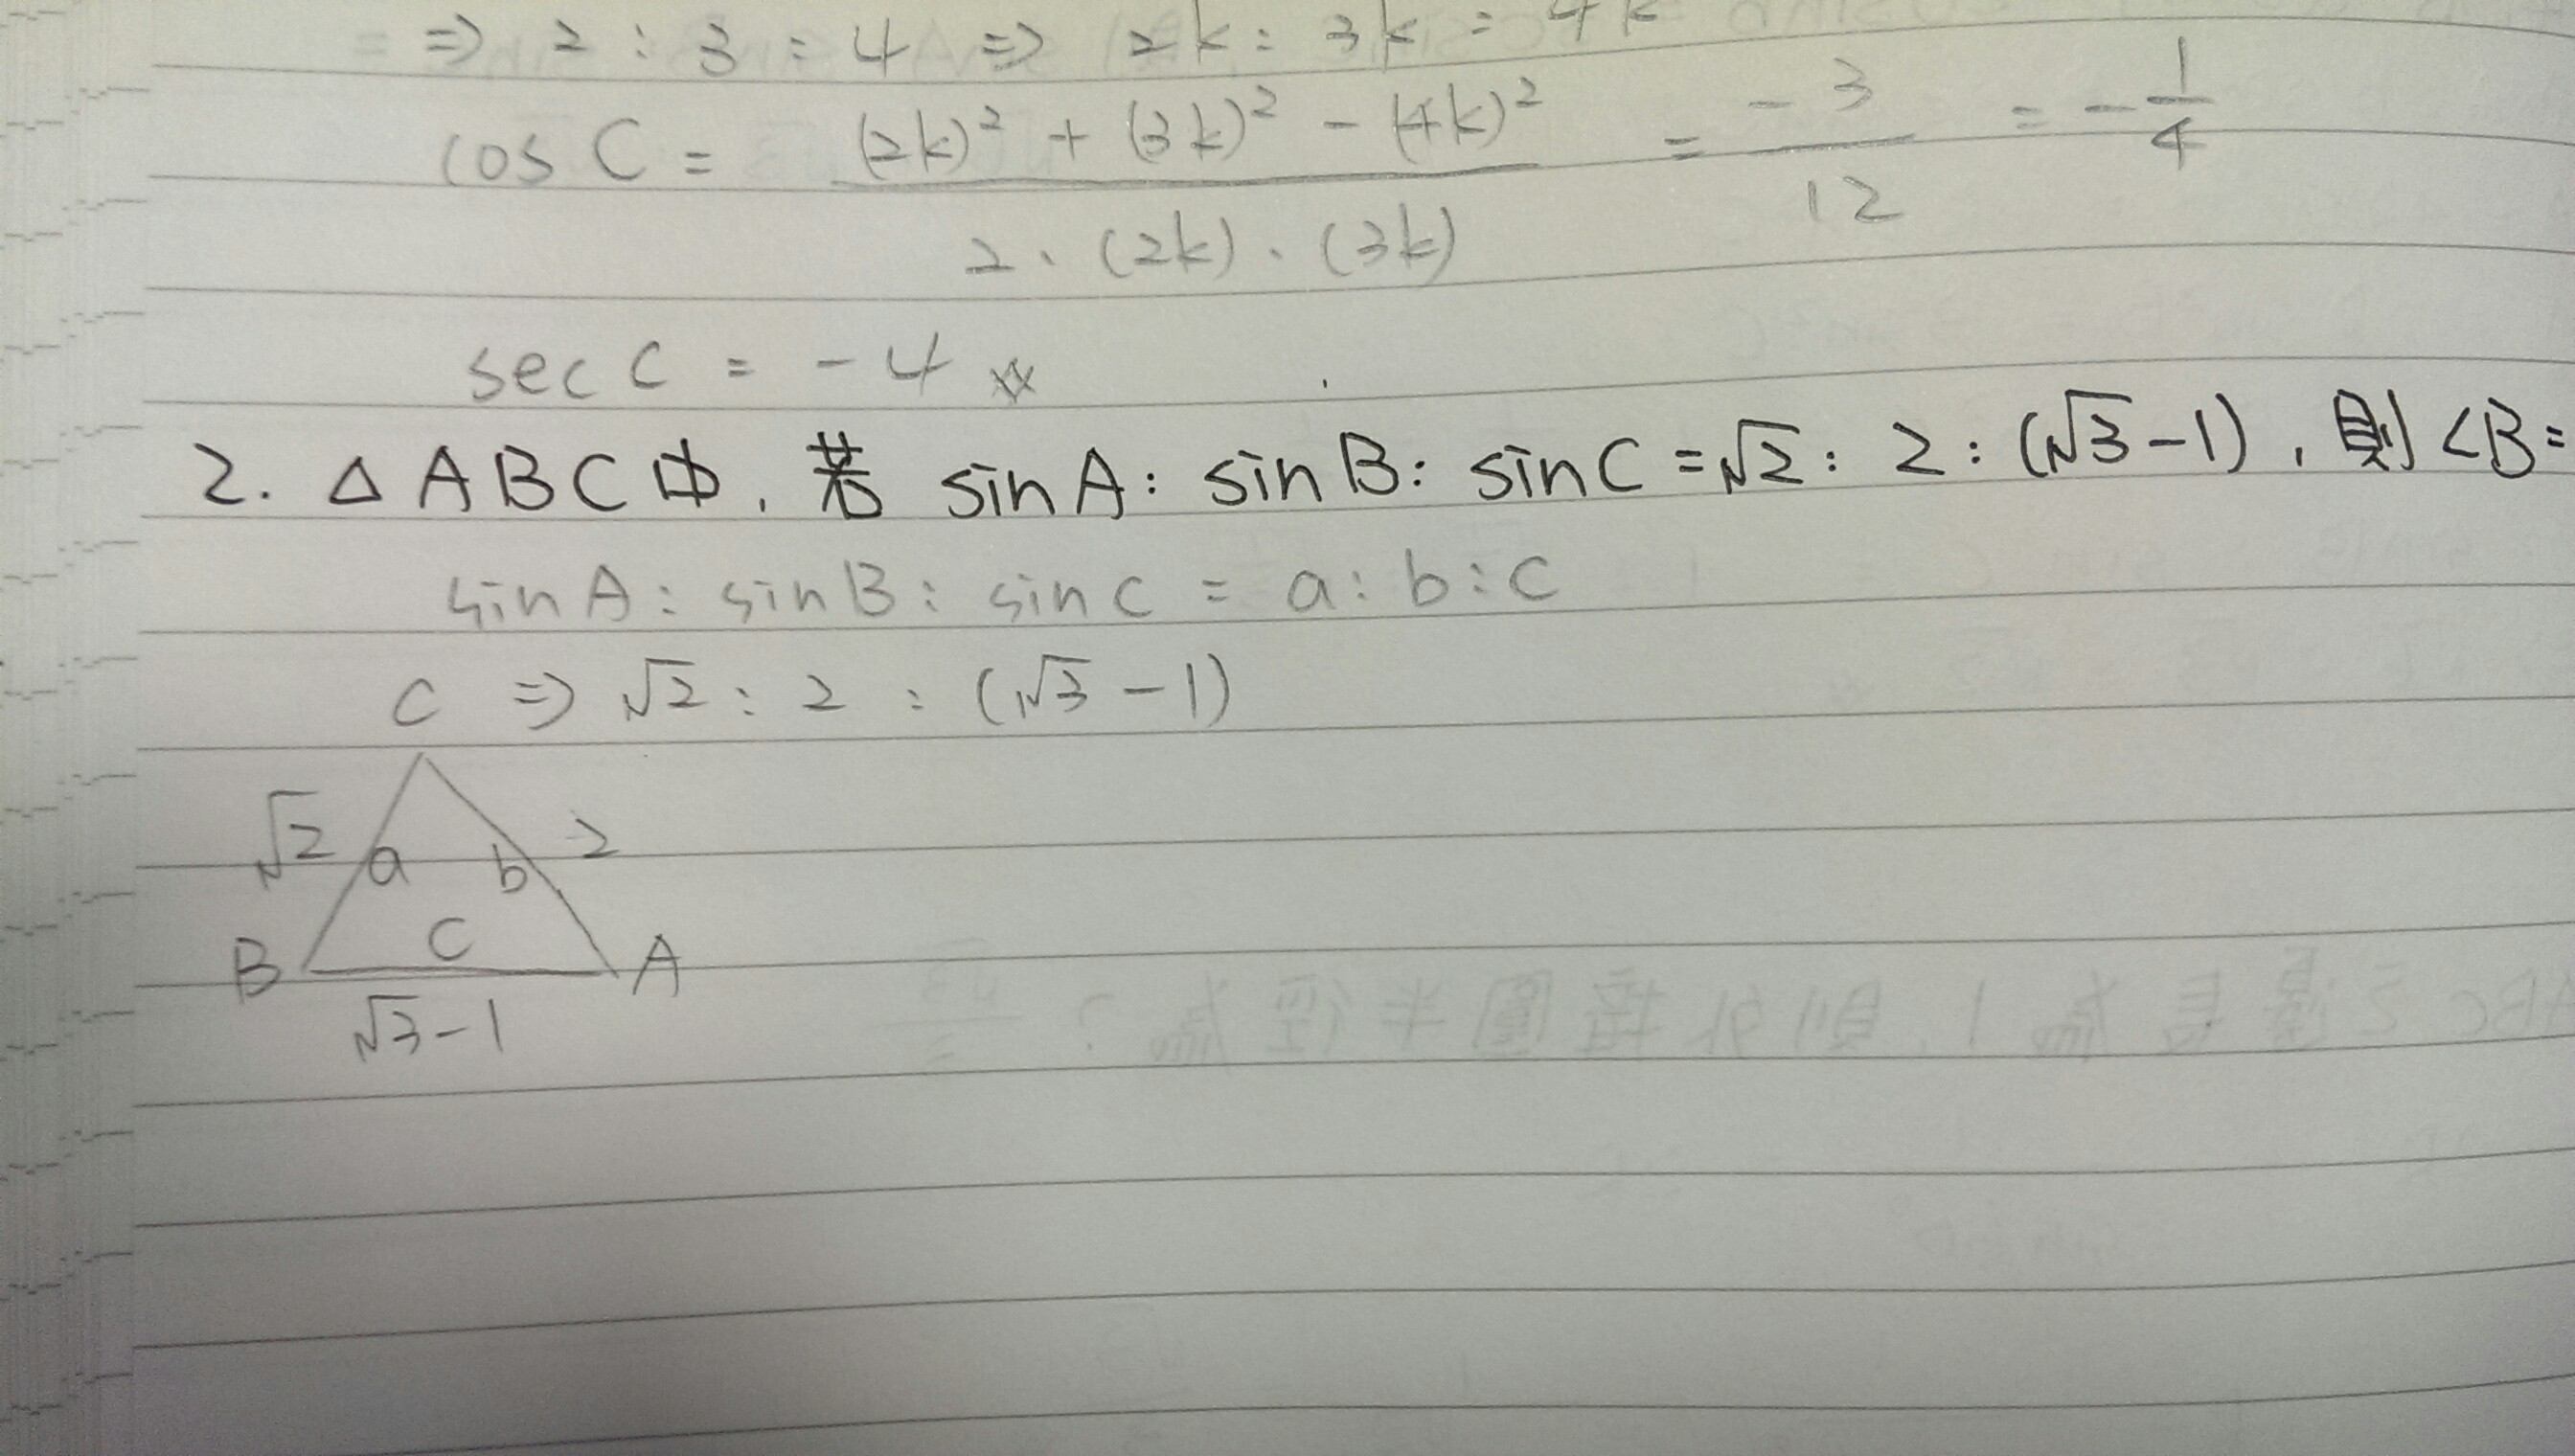 ⇒ 2 : 3 : 4 ⇒ 2k : 3k : 4k
cos C = (2k)² + (3k)² - (4k)² / 2 · (2k) · (3k) = -3 / 12 = - 1/4
sec C = -4
2. △ABC中, 若 sinA : sinB : sinC = √2 : 2 : (√3-1), 則 <B=
sinA : sinB : sinC = a : b : c
⇒ √2 : 2 : (√3-1)
C
√2 a b 2
B c A
√3-1